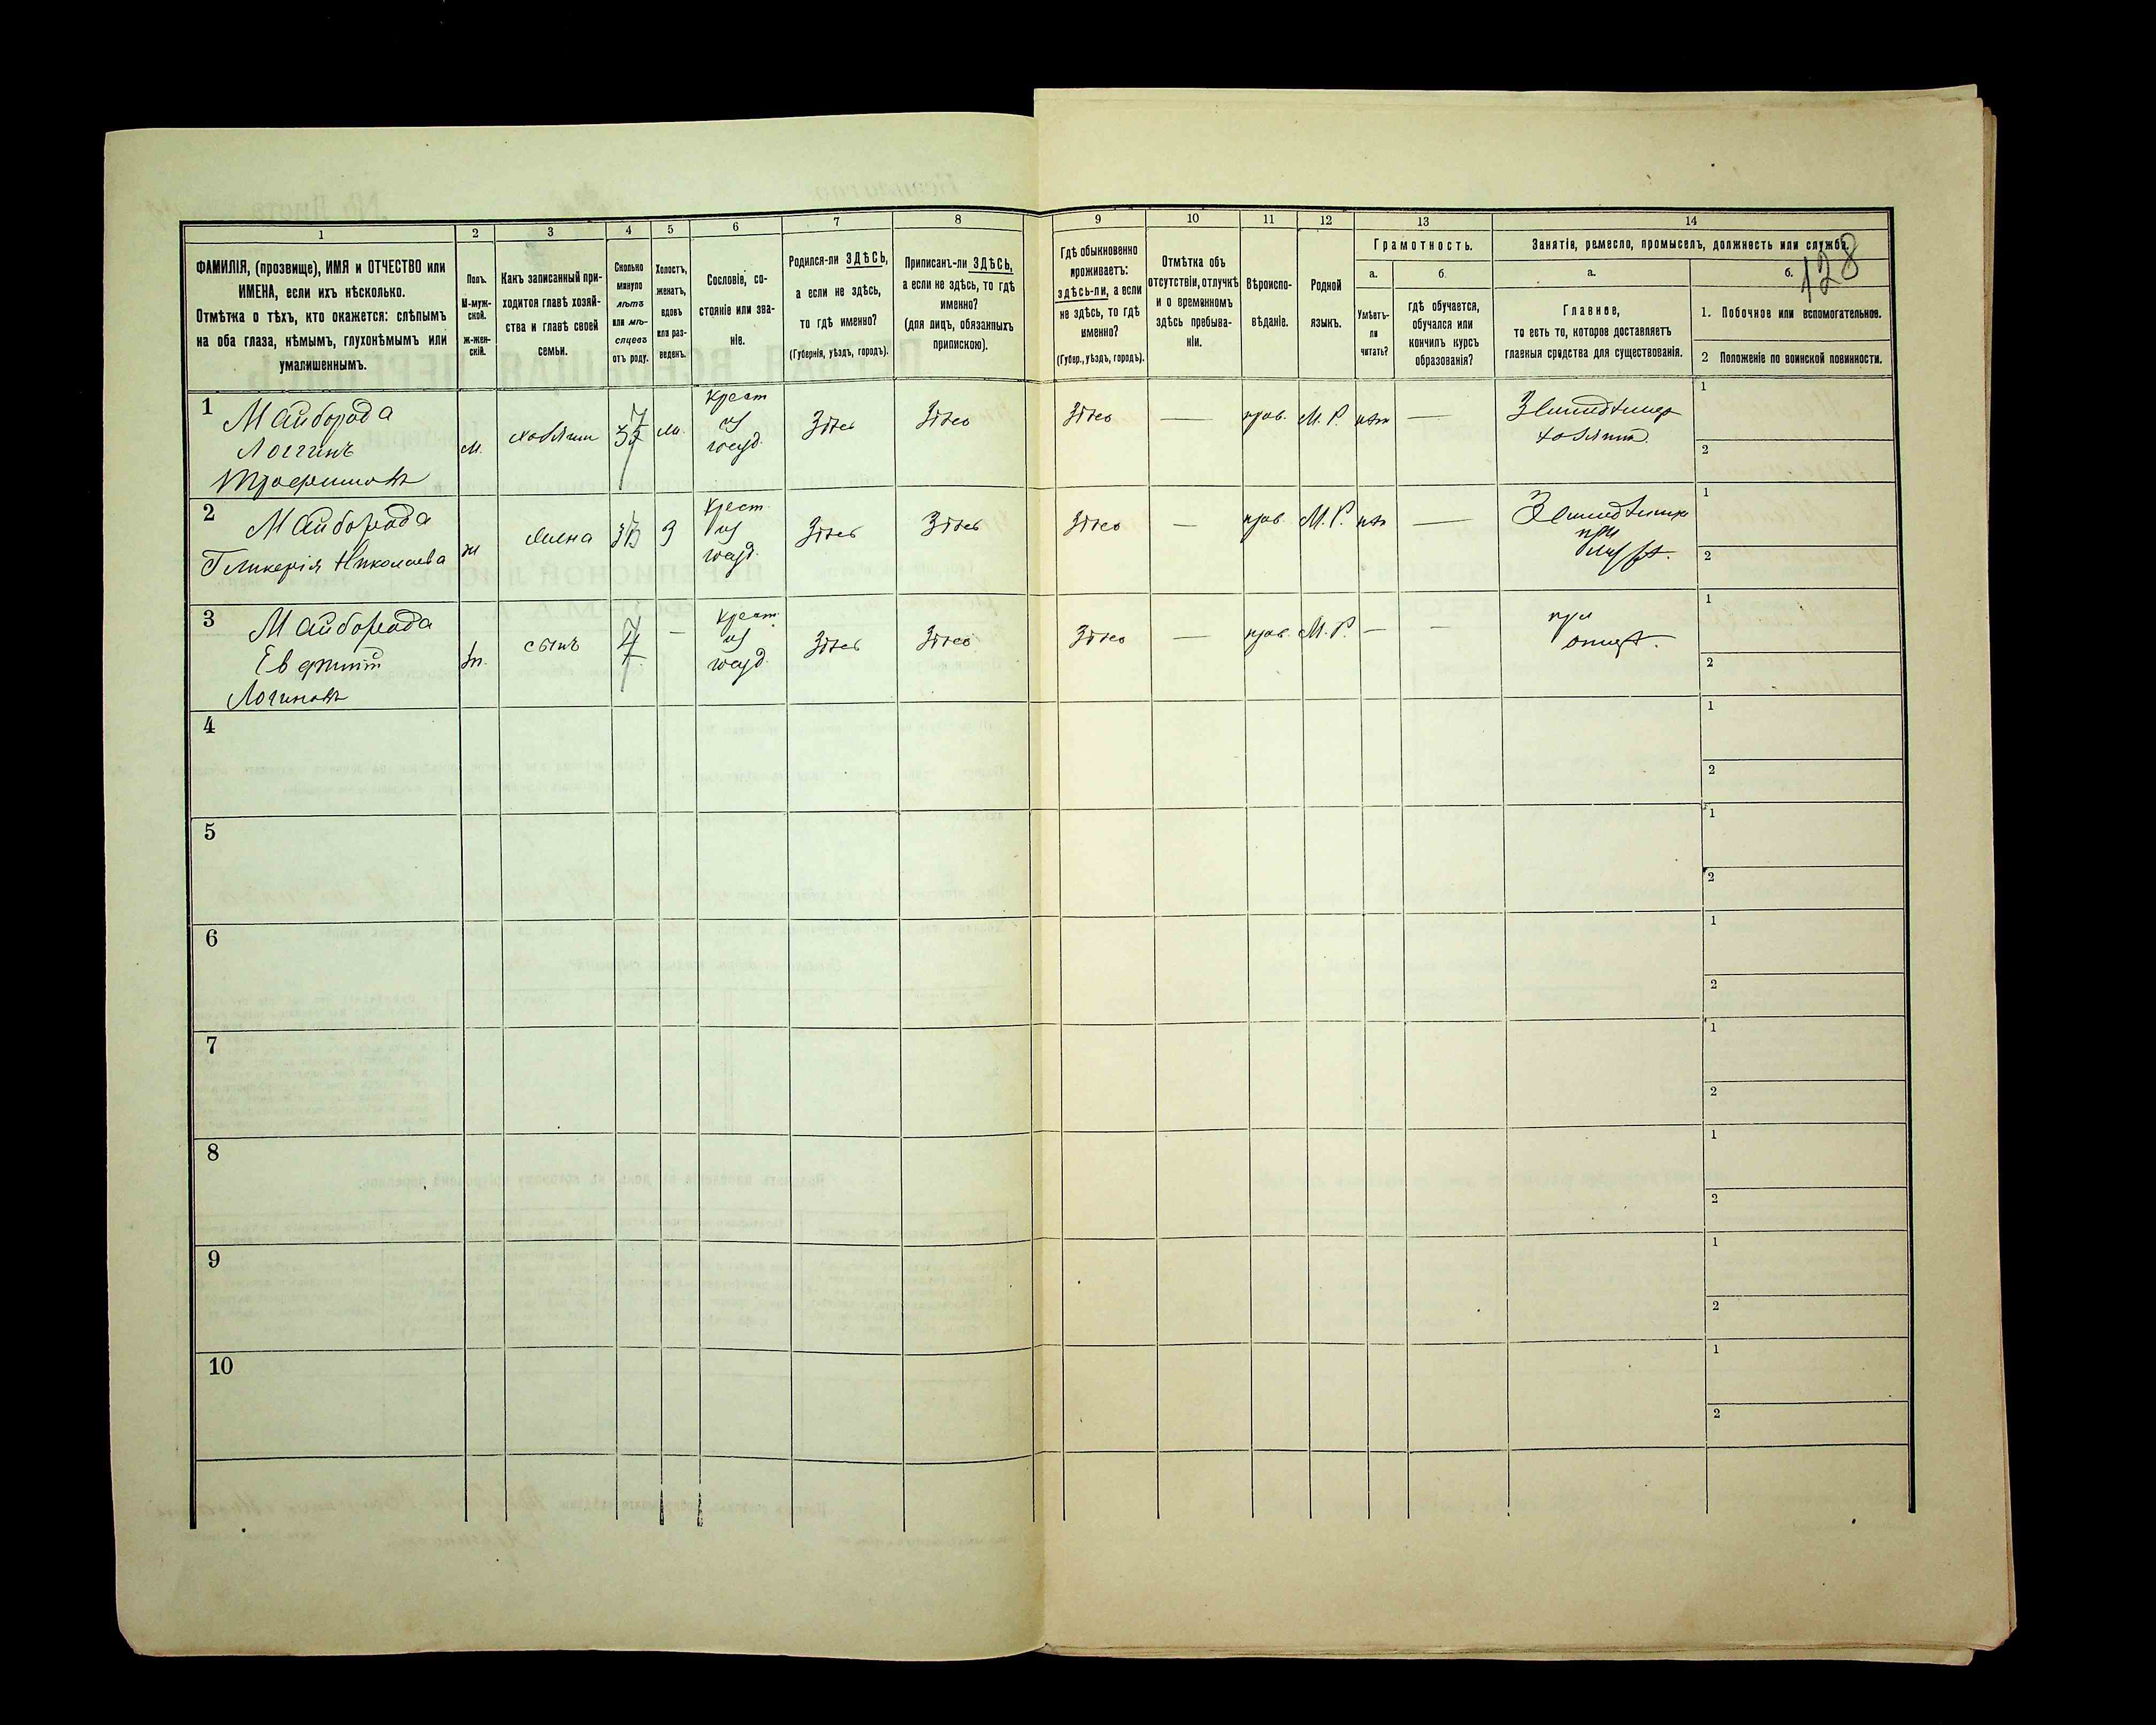 128
1 2 3 4 5 6 7 8 9 10 11 12 13 14
ФАМИЛІЯ, (прозвище), ИМЯ и ОТЧЕСТВО или
ИМЕНА, если ихъ нѣсколько.
Отмѣтка о тѣхъ, кто окажется: слѣпымъ
на оба глаза, нѣмымъ, глухонѣмымъ или
умалишеннымъ.
Полъ.
М-муж-
ской.
ж-жен-
скій.
Какъ записанный при-
ходится главѣ хозяй-
ства и главѣ своей
семьи.
Сколько
минуло
лѣтъ
или мѣ-
сяцевъ
отъ роду.
Холостъ,
женатъ,
вдовъ
или раз-
веденъ.
Сословіе, со-
стояніе или зва-
ніе.
Родился-ли ЗДѢСЬ,
а если не здѣсь,
то гдѣ именно?
(Губернія, уѣздъ, городъ).
Приписанъ-ли ЗДѢСЬ,
а если не здѣсь, то гдѣ
именно?
(для лицъ, обязанныхъ
припискою).
Гдѣ обыкновенно
проживаетъ:
здѣсь-ли, а если
не здѣсь, то гдѣ
именно?
(Губер., уѣздъ, городъ).
Отмѣтка объ
отсутствіи, отлучкѣ
и о временномъ
здѣсь пребыва-
ніи.
Вѣроиспо-
вѣданіе.
Родной
языкъ.
Грамотность.
а.
Умѣетъ-
ли
читать?
б.
гдѣ обучается,
обучался или
кончилъ курсъ
образованія?
Занятія, ремесло, промыселъ, должность или служба.
а.
Главное,
то есть то, которое доставляетъ
главныя средства для существованія.
б.
1. Побочное или вспомогательное.
2 Положеніе по воинской повинности.
1 Майборода
Логгинъ
Трофимовъ
м. хозяинъ
Крест
из
госуд.
Здѣсь Здѣсь Здѣсь — прав. М. Р. нѣтъ —
Земледѣлецъ
хозяинъ
1
2
2 Майборода
Гликерія Николаева
ж жена
Крест
из
госуд.
Здѣсь Здѣсь Здѣсь — прав. М. Р. нѣт —
при
мужѣ.
1
2
3 Майборода
Евфимій
Логиновъ
сынъ —
Крест
из
госуд.
Здѣсь Здѣсь Здѣсь — прав. М. Р. — —
при
отцѣ.
1
2
4
1
2
5
1
2
6
1
2
7
1
2
8
1
2
9
1
2
10
1
2